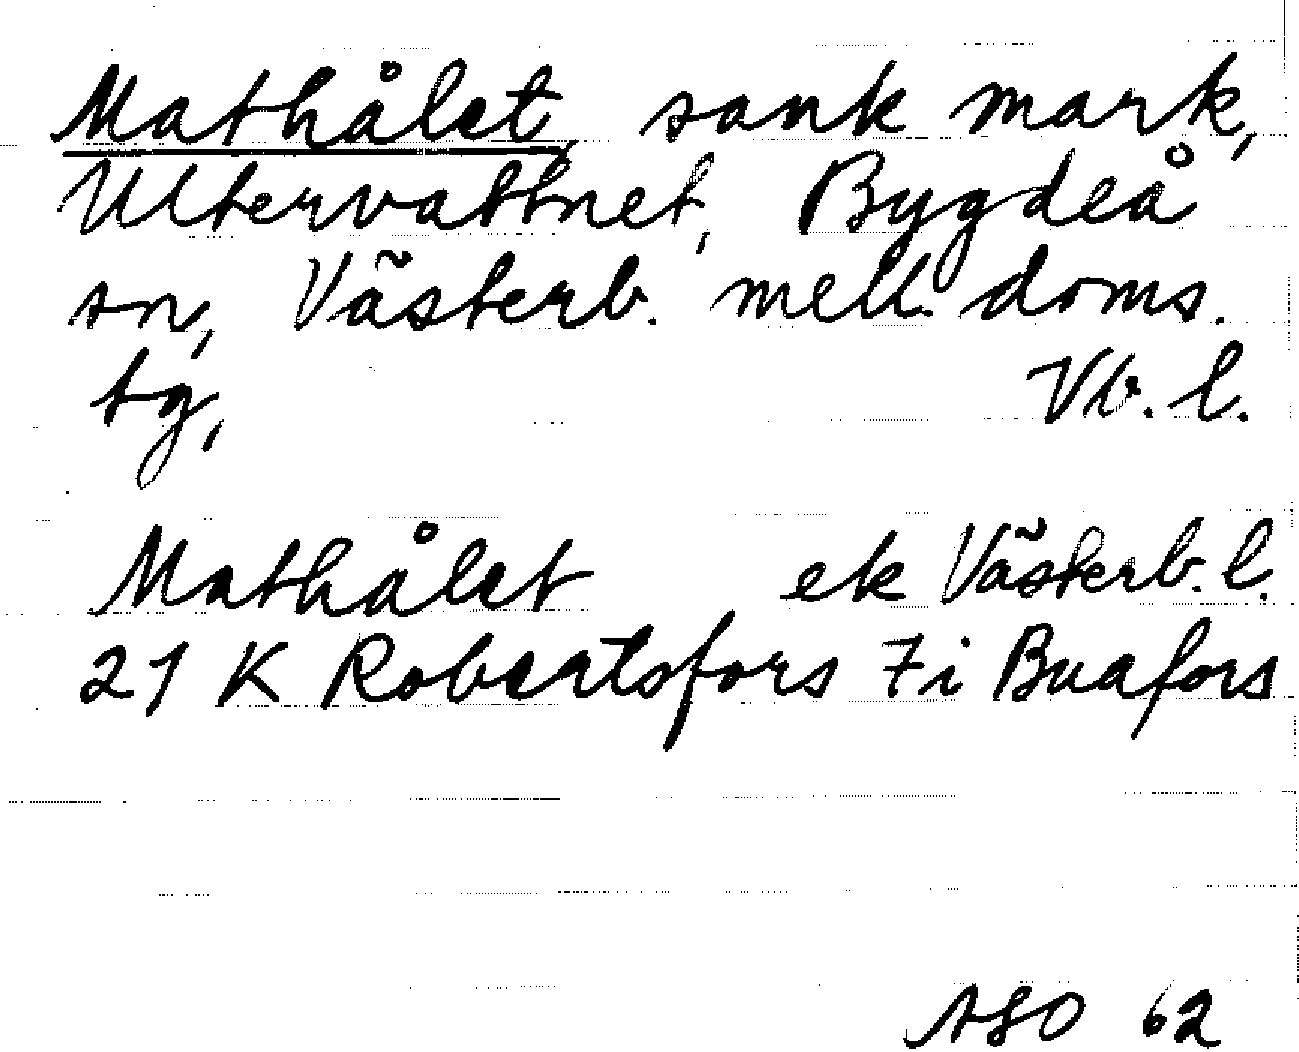 Mathålet, sank mark,
Ultervattnet, Bygdeå
sn, Västerb. mell. doms.
tg, Vb. l.
Mathålet ek Västerb. l.
21 K Robertsfors 7i Buafors
ASO 62